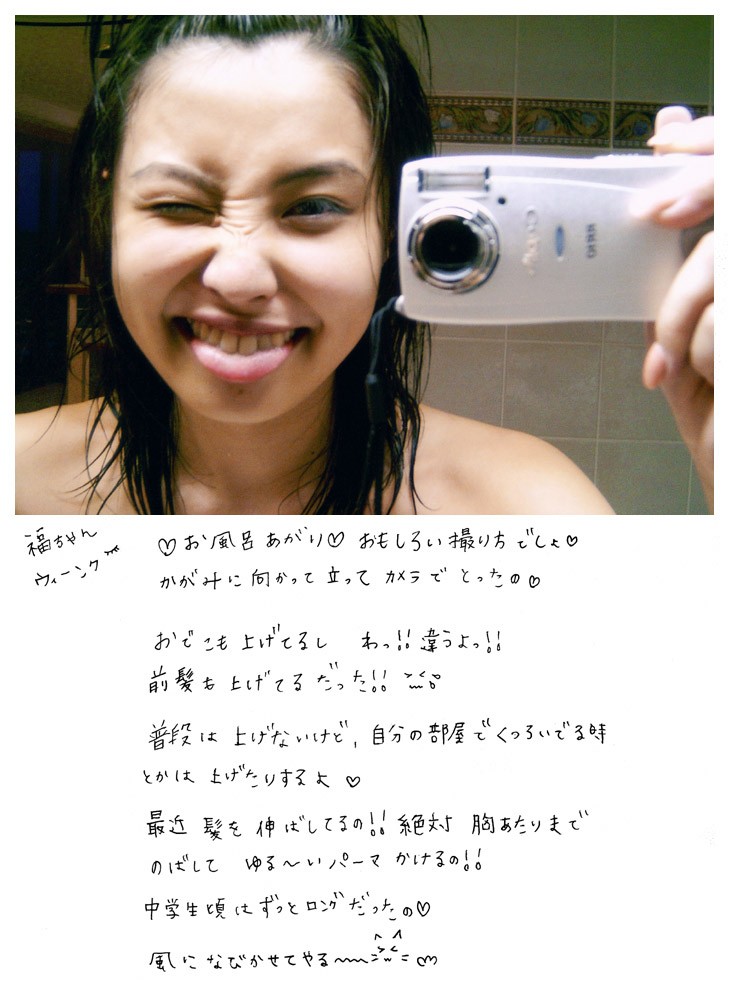 福ちゃん
ウィーンク
♡お風呂あがり♡ おもしろい撮り方でしょ♡
かがみに向かって立ってカメラでとったの♡
おでこも上げてるし わっ!!違うよっ!!
前髪も上げてるだった!!
普段は上げないけど,自分の部屋でくつろいでる時
とかは上げたりするよ♡
最近髪を伸ばしてるの!!絶対胸あたりまで
のばして ゆる〜いパーマかけるの!!
中学生頃はずっとロングだったの♡
風になびかせてやる〜〜